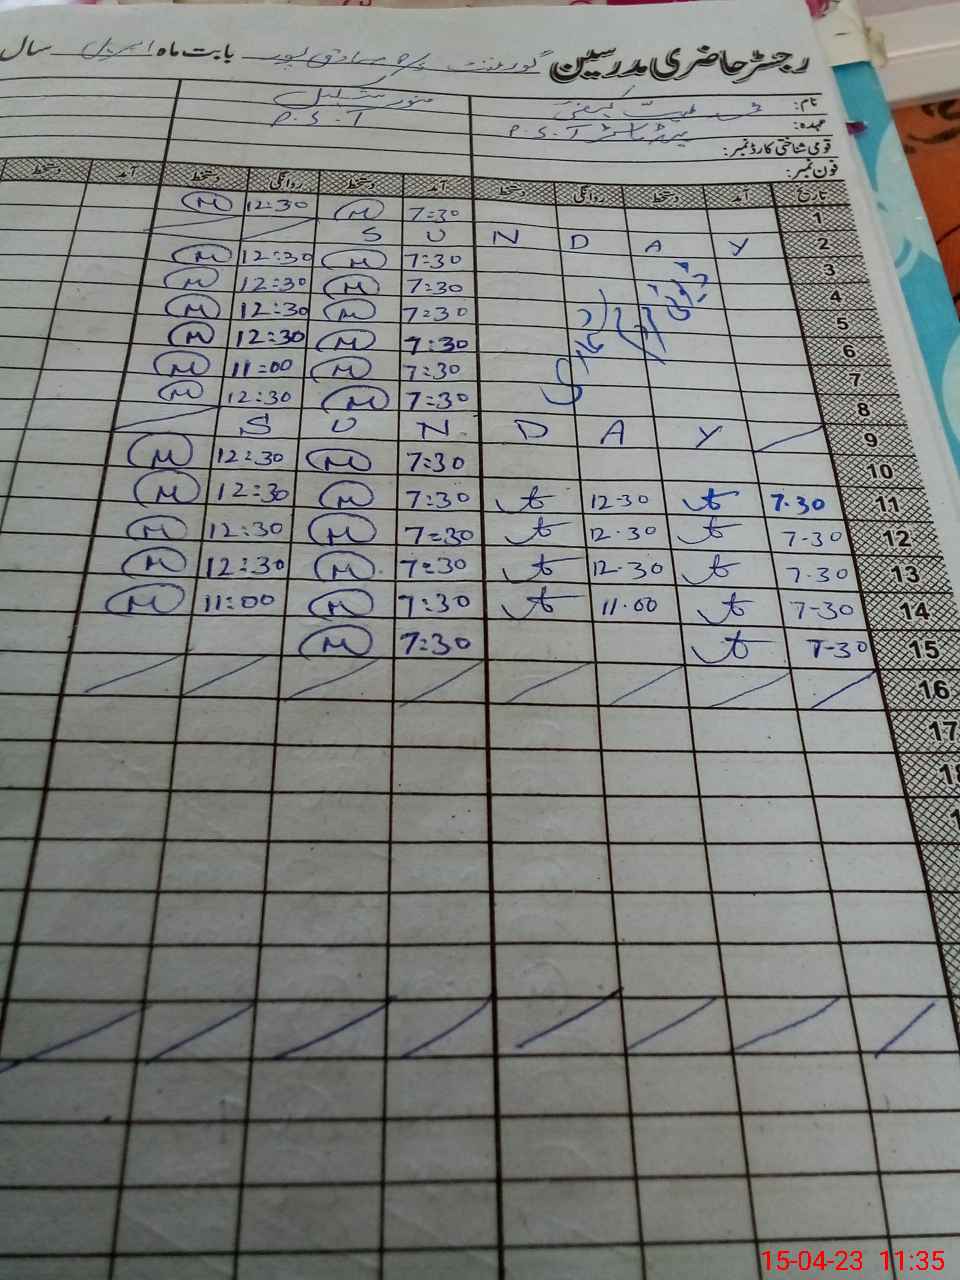 رجسٹر حاضری مدرسین گورنمنٹ بابت ماہ اپریل سال
نام:
عہدہ: P.S.T P.S.T
قومی شناختی کارڈ نمبر:
فون نمبر:
تاریخ آمد دستخط روانگی دستخط آمد دستخط روانگی دستخط آمد دستخط
1 7:30 M 12:30 M
2 S U N D A Y
3 7:30 M 12:30 M
4 7:30 M 12:30 M
5 7:30 M 12:30 M
6 7:30 M 12:30 M
7 7:30 M 11:00 M
8 7:30 M 12:30 M
9 S U N D A Y
10 7:30 M 12:30 M
11 7.30 12-30 7:30 M 12:30 M
12 7-30 12.30 7:30 M 12:30 M
13 7.30 12.30 7:30 M 12:30 M
14 7-30 11.00 7:30 M 11:00 M
15 7-30 7:30 M
16
17
15-04-23 11:35